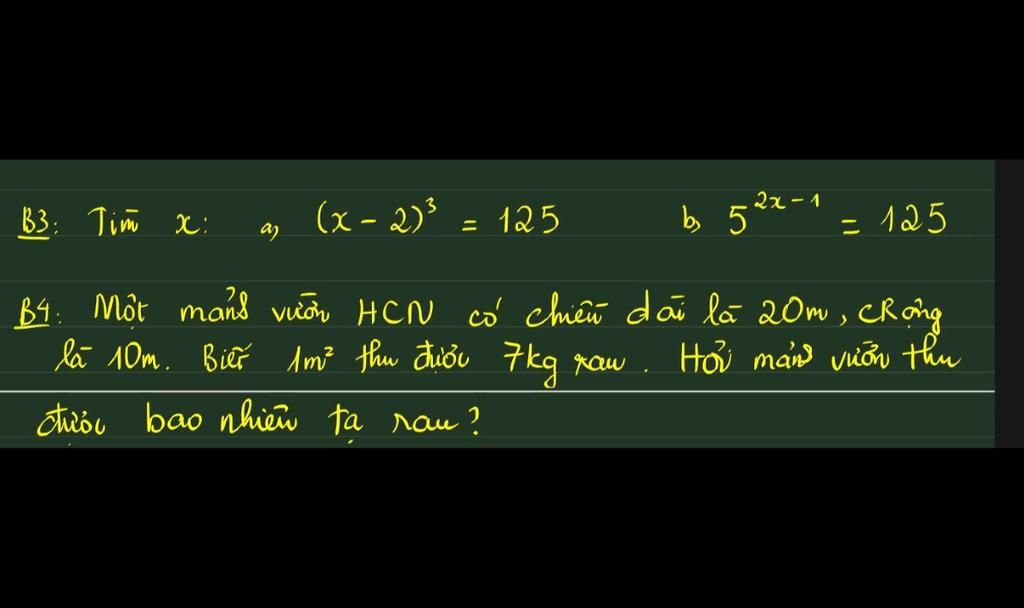 B3: Tìm x: a, (x - 2)³ = 125 b, 5²ˣ⁻¹ = 125
B4: Một mảnh vườn HCN có chiều dài là 20m, CRộng
là 10m. Biết 1m² thu được 7kg rau. Hỏi mảnh vườn thu
được bao nhiêu tạ rau?